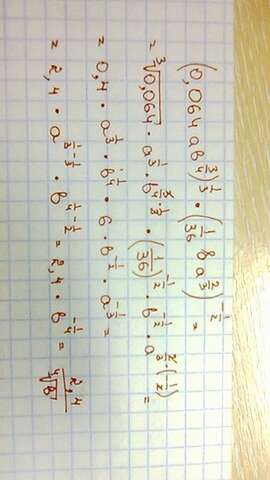 (0,064 a b^{3/4})^{1/3} · (1/36 b a^{2/3})^{-1/2} =
= ∛0,064 · a^{1/3} · b^{3/4 · 1/3} · (1/36)^{-1/2} · b^{-1/2} · a^{2/3 · (-1/2)} =
= 0,4 · a^{1/3} · b^{1/4} · 6 · b^{-1/2} · a^{-1/3} =
= 2,4 · a^{1/3 - 1/3} · b^{1/4 - 1/2} = 2,4 · b^{-1/4} = 2,4/∜b